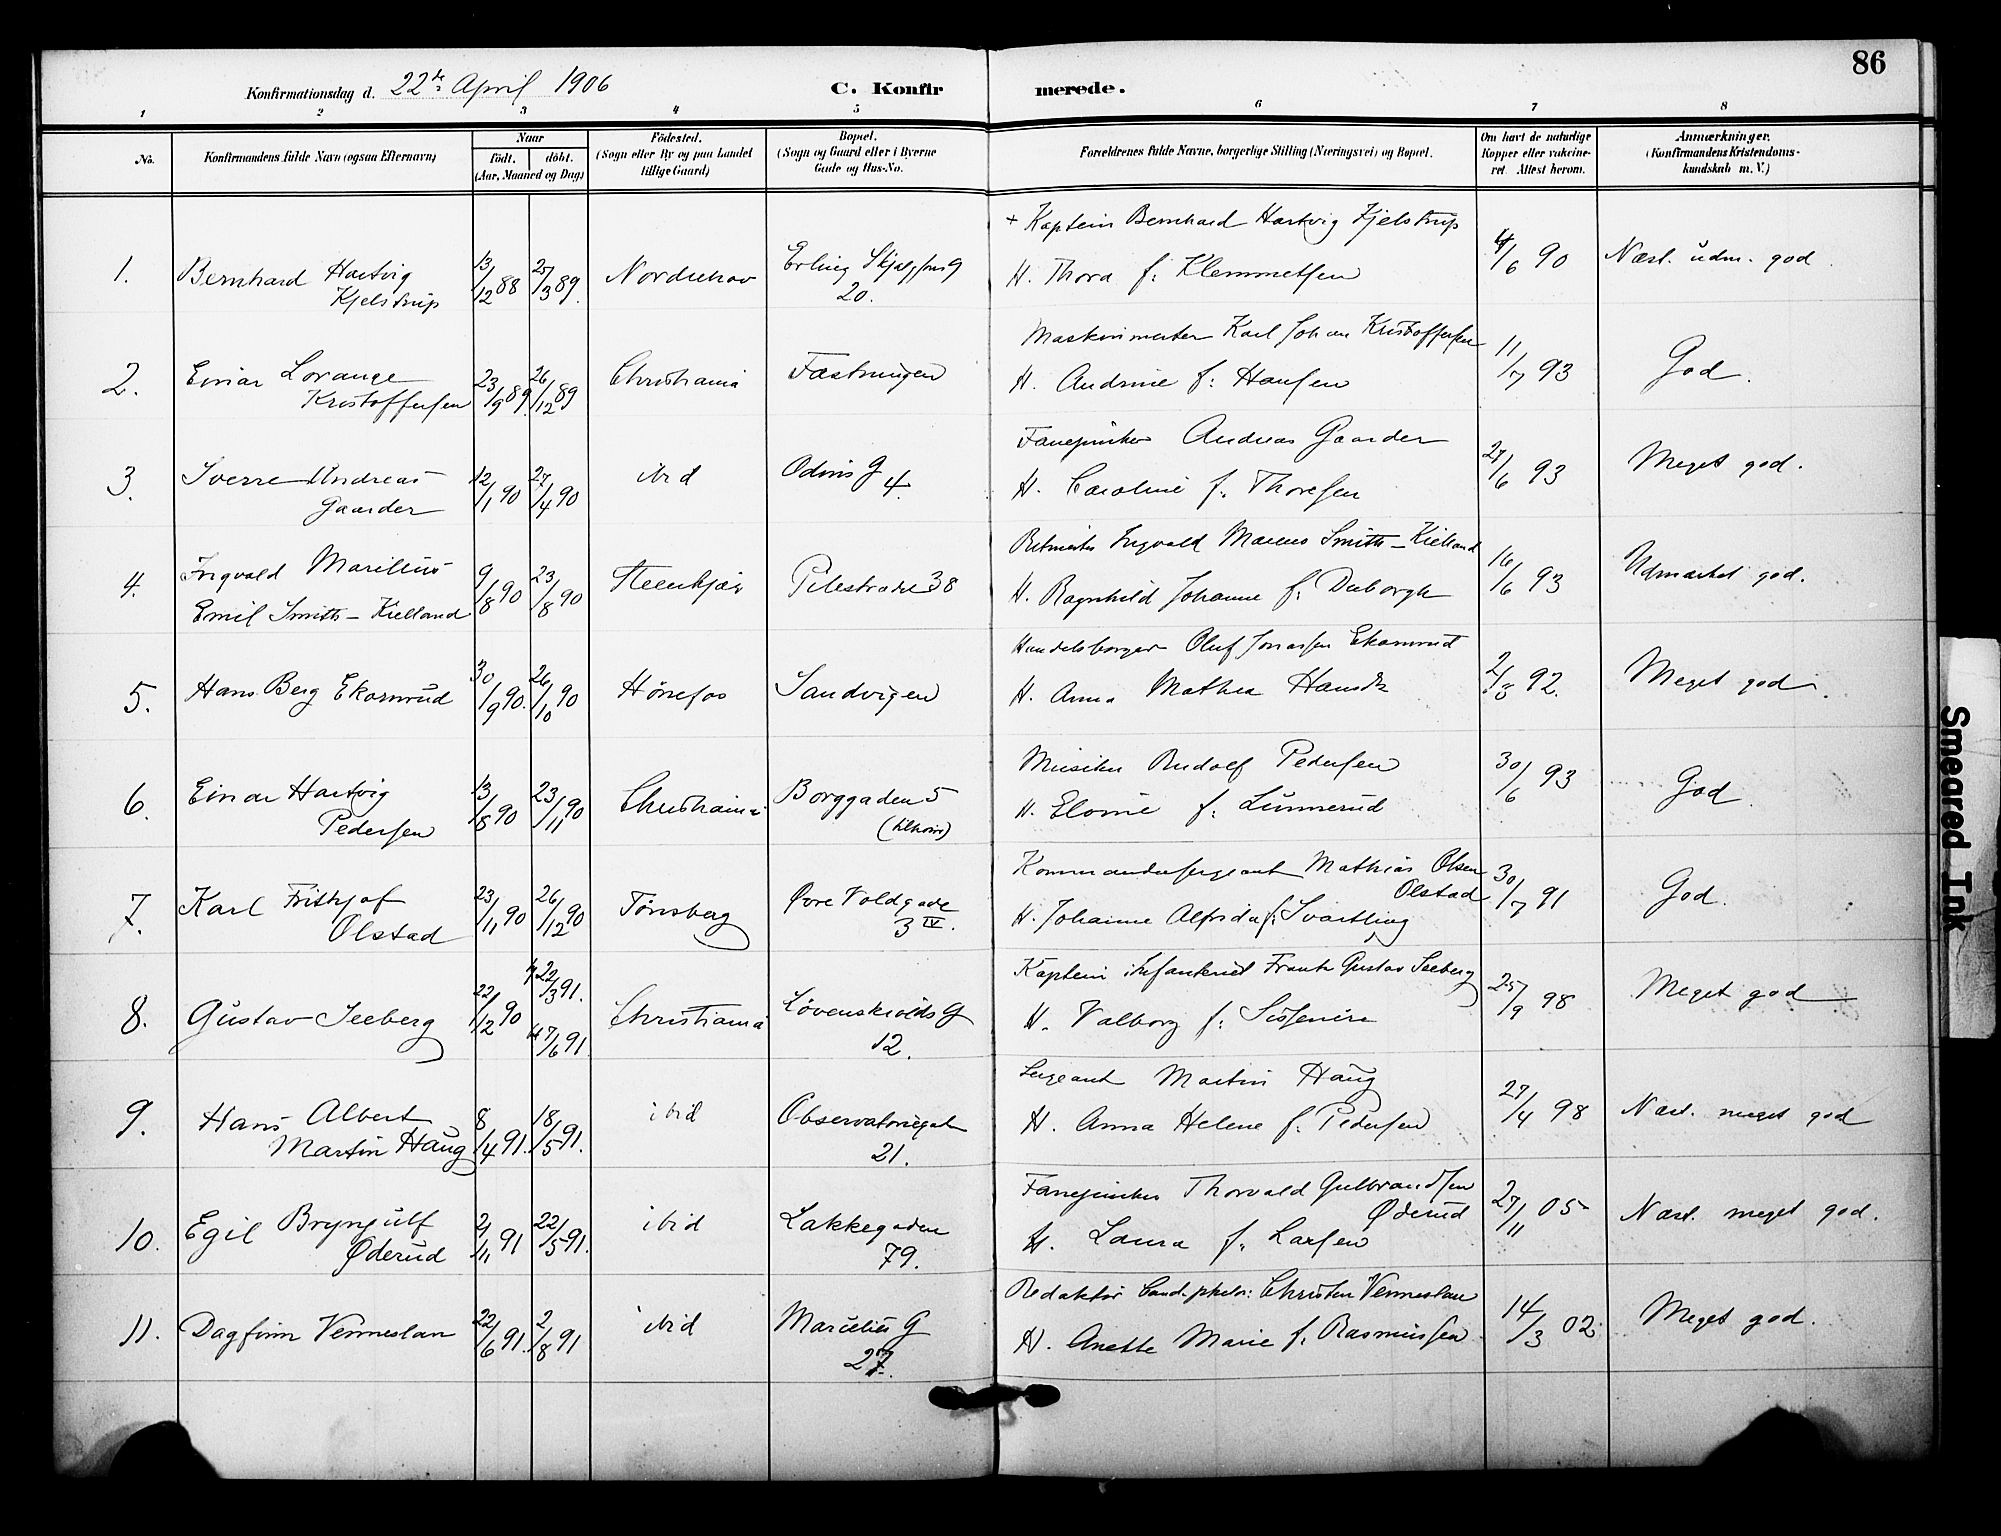 86
Konfirmationsdag d. 22de April 1906 C. Konfirmerede.
1 2 3 4 5 6 7 8
No. Konfirmandens fulde Navn (ogsaa Efternavn)
Naar
født. døbt.
(Aar, Maaned og Dag)
Fødested.
(Sogn eller By og paa Landet
tillige Gaard)
Bopæl.
(Sogn og Gaard eller i Byerne
Gade og Hus-No.
Forældrenes fulde Navne, borgerlige Stilling (Næringsvei) og Bopæl.
Om havt de naturlige
Kopper eller vakcine-
ret. Attest herom.
Anmærkninger.
(Konfirmandens Kristendoms-
kundskab m. V.)
1. Bernhard Hartvig
Kjelstrup
13/12 88 25/3 89. Norderhov
Erling Skjalgsøns G
20.
+ Kaptein Bernhard Hartvig Kjelstrup
H. Thora f: Klemmetsen
4/6 90 Næst. udm. god
2. Einar Lorange
Kristoffersen
23/9 89 26/12 89 Christiania Fæstningen
Maskinmester Karl Johan Kristoffersen
H. Andrine f: Hansen
11/7 93 God.
3. Sverre Andreas
Gaarder
12/1 90 27/4 90 ibid Odins G 4.
Fanejunker Andreas Gaarder
H. Caroline f: Thoresen
27/6 93 Meget god.
4. Ingvald Marillius
Emil Smith-Kielland
9/8 90 23/8 90 Steenkjær Pilestrædet 38
Ritmester Ingvald Smith-Kielland
H. Ragnhild Johanne f: Duborgh
16/6 93 Udmærket god.
5. Hans Berg Ekornrud
30/9 90. 26/10 90 Hønefos Sandvigen
Handelsborger Oluf Jonassen Ekornrud
H. Anna Mathea Hansdtr
2/8 92. Meget god.
6. Einar Hartvig
Pedersen
13/8 90 23/11 90 Christiania Borggaden 5
Musiker Rudolf Pedersen
H. Elovie f: Lunnerud
30/6 93 God.
7. Karl Frithjof
Olstad
23/1 90 26/12 90 Tønsberg
Øvre Voldgade
3 IV.
Kommandersergeant Mathias Olsen
Olstad
H. Johanne f: Svartling
30/7 91 God.
8. Gustav Seeberg
22/12 90 22/3 91.
7/6 91. Christiania
Løvenskiolds G
12.
Kaptein i Infanteriet Frantz Gustav Seeberg
H. Valborg f:
25/9 98 Meget god
9. Hans Albert
Martin Haug
8/4 91. 18/5 91. ibid
Observatoriegate
21.
Sergeant Martin Haug
H. Anna Helene f: Pedersen
27/4 98 Næst. meget god
10. Egil Bryngulf
Øderud
2/11 91 22/5 91. ibid
Lakkegaden
79.
Fanejunker Thorvald Gulbrandsen
Øderud
H. Laura f: Larsen
27/11 05 Næst. meget god.
11. Dagfinn Venneslan
22/6 91. 2/8 91 ibid
Marcelius G
27.
Redaktør Cand. philos: Christen Venneslan
H. Anette Marie f: Rasmussen
14/3 02. Meget god.
Smeared Ink